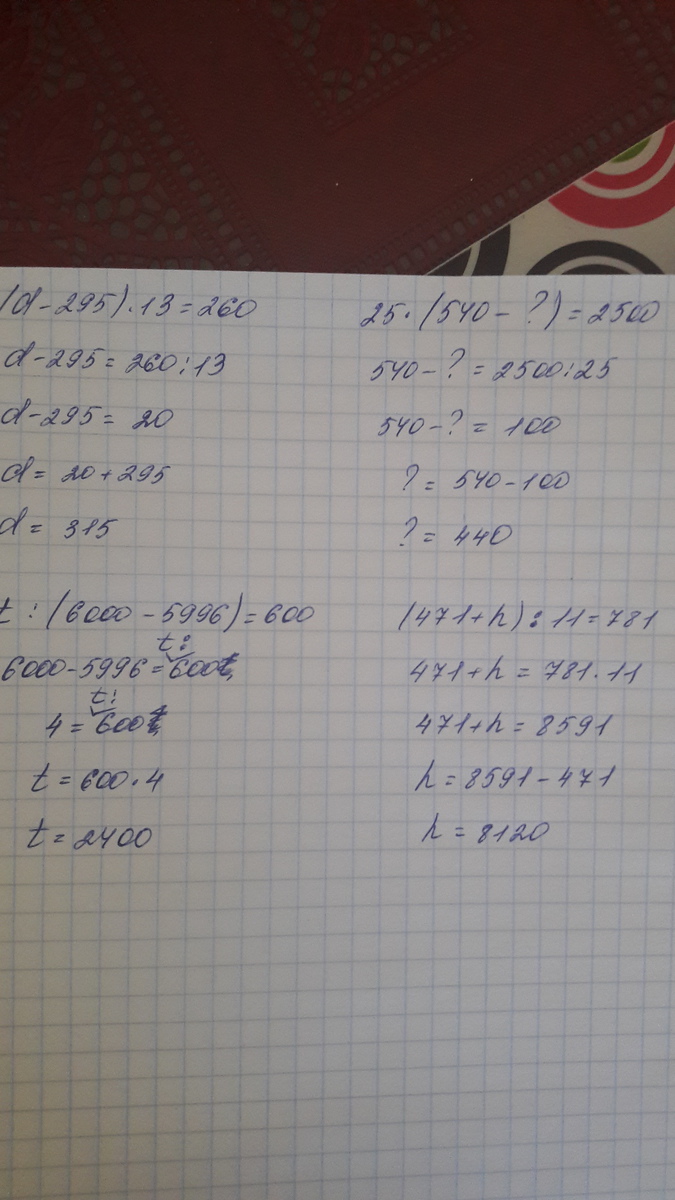 (d-295)·13=260
d-295=260:13
d-295= 20
d= 20+295
d= 315
25·(540-?)=2500
540-?=2500:25
540-?= 100
?= 540-100
?= 440
t:(6000-5996)=600
t:
6000-5996=600
t:
4=600
t=600·4
t=2400
(471+h):11=781
471+h=781·11
471+h=8591
h=8591-471
h=8120